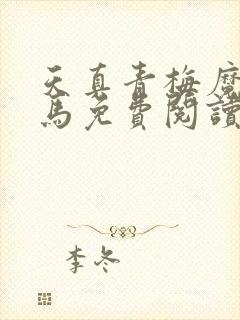 天真青梅魔
馬免費閱讀
李冬